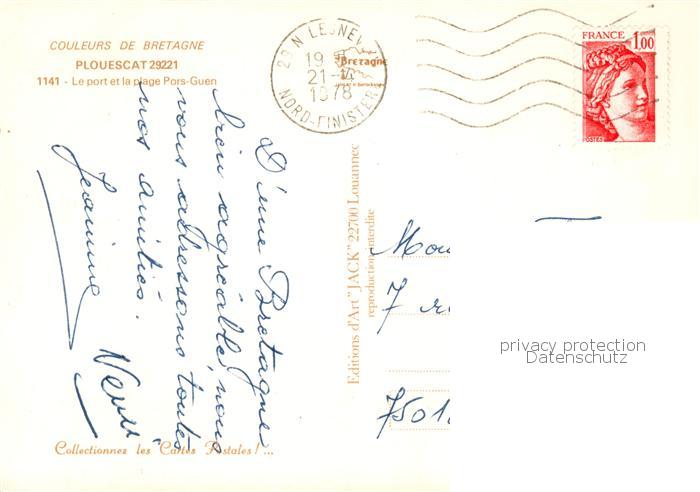 COULEURS DE BRETAGNE
PLOUESCAT 29221
1141 - Le port et la plage Pors-Guen
29 N LESNEVEN
19 H
21-4
1978
NORD-FINISTERE
Bretagne
FRANCE
1,00
POSTES
D'une Bretagne
bien agréable, nous
vous adressons toutes
nos amitiés.
Jeanine
Editions d'Art "JACK" 22700 Louannec
reproduction interdite
7
privacy protection
Datenschutz
Collectionnez les Cartes Postales !...